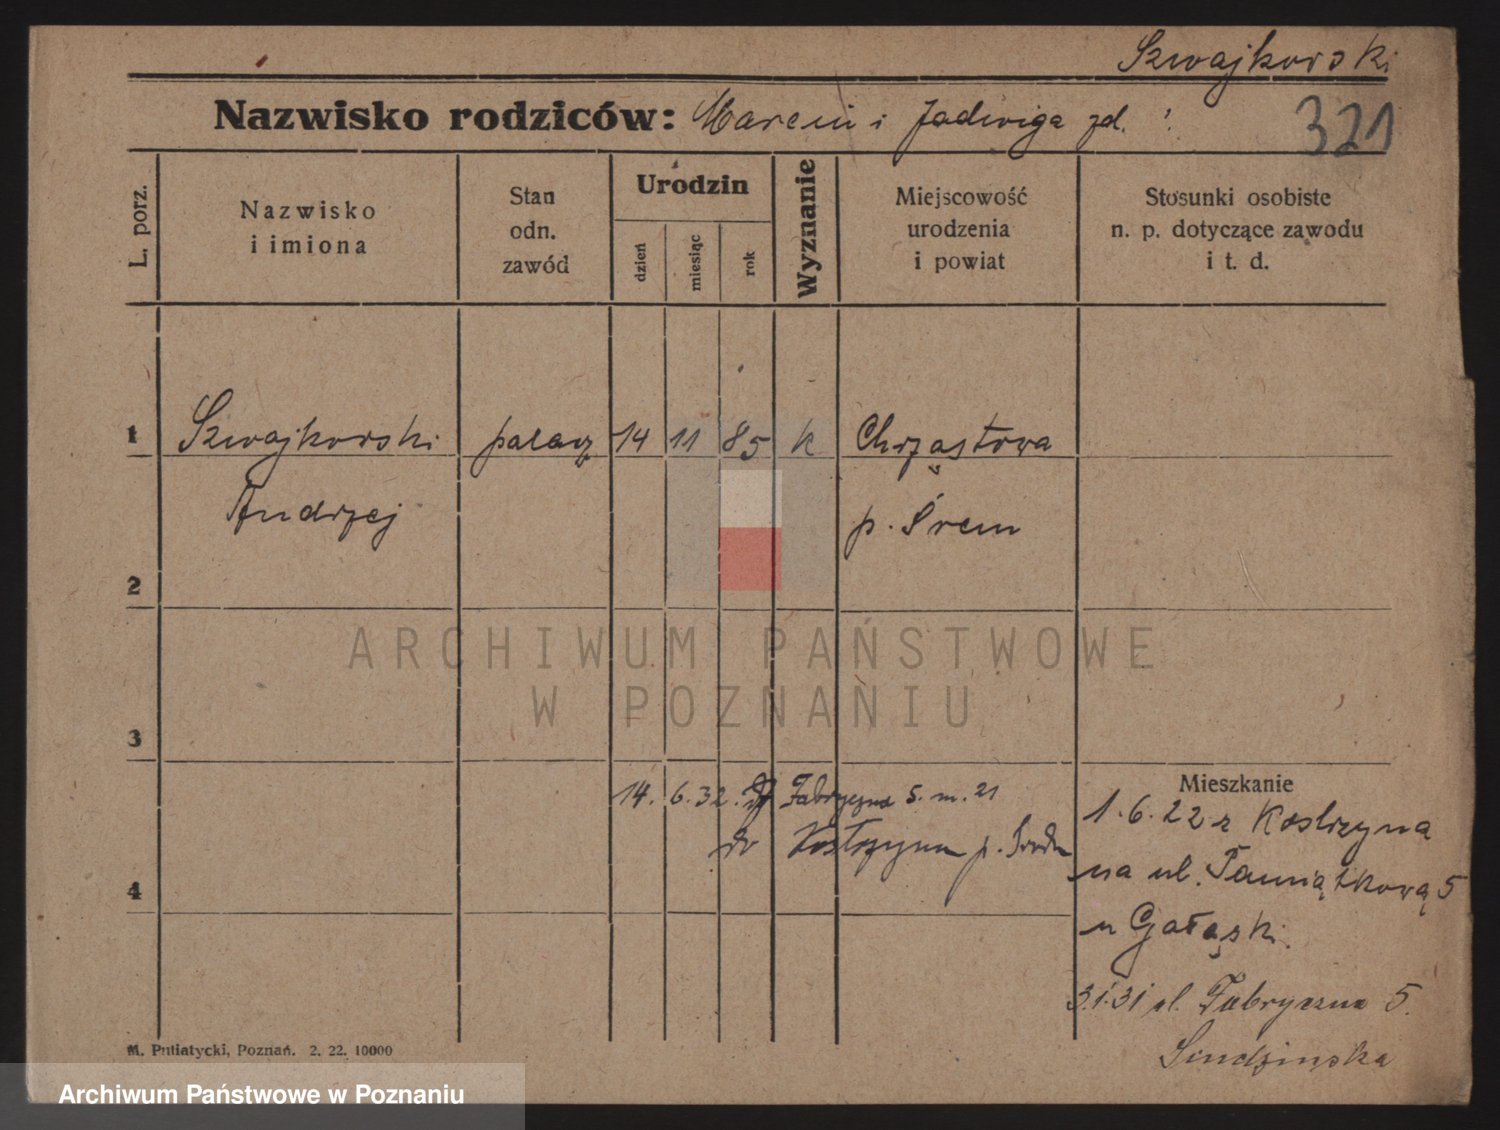 Szwajkowski
Nazwisko rodziców: Marcin i Jadwiga zd. ?
321
L. porz.
Nazwisko
i imiona
Stan
odn.
zawód
Urodzin
dzień
miesiąc
rok
Wyznanie
Miejscowość
urodzenia
i powiat
Stosunki osobiste
n. p. dotyczące zawodu
i t. d.
1 Szwajkowski palacz 14 11 85 k Chrząstowa
Andrzej p. Śrem
2
3
Mieszkanie
14. 6. 32. Fabryczna 5. m. 21
do Kostrzyna p. Środa
1.6.22 z Kostrzyna
na ul. Pamiątkową 5
u Gałąski.
4
3.1.31 ul. Fabryczna 5.
M. Putiatycki, Poznań. 2. 22. 10000
ARCHIWUM PAŃSTWOWE
W POZNANIU
Archiwum Państwowe w Poznaniu